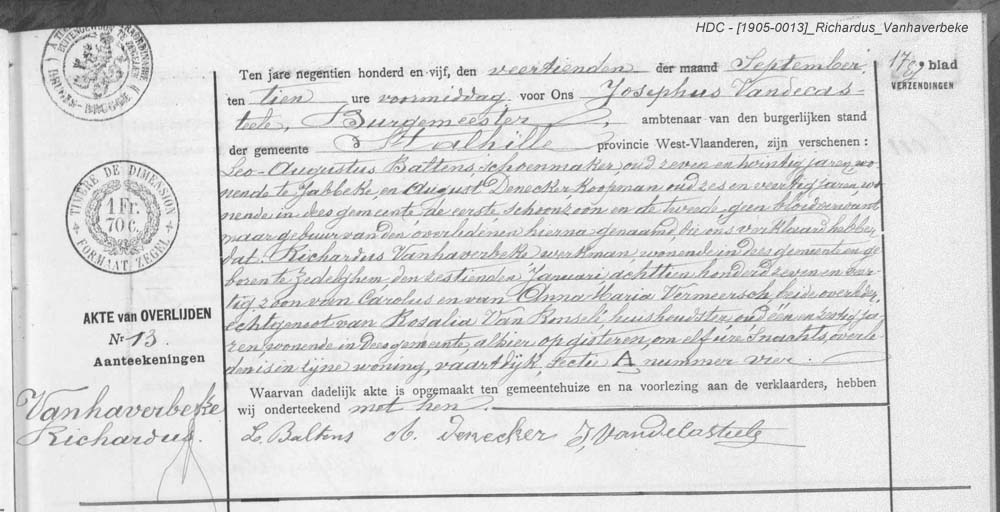 HDC - [1905-0013]_Richardus_Vanhaverbeke
Ten jare negentien honderd en vijf, den veertienden der maand September
ten tien ure voormiddag voor Ons Josephus Vandecas-
teele, Burgemeester, ambtenaar van den burgerlijken stand
der gemeente Stalhille provincie West-Vlaanderen, zijn verschenen :
Leo-Augustus Baltens, schoenmaker, oud zeven en twintig jaren, wo-
nende te Jabbeke, en August Denecker koopman, oud zes en veertig jaren, wo-
nende in dees gemeente, de eerste schoonzoon en de tweede geen bloedverwant
maar gebuur van den overledenen hierna genaamd, die ons verklaard hebben
dat Richardus Vanhaverbeke werkman, wonende in dees gemeente en ge-
boren te Zedelghem, den zestienden Januari achttien honderd zeven en
tig, zoon van Carolus en van Anna Maria Vermeersch, beide overleden,
echtgenoot van Rosalia Van Ronselé, huishoudster, oud een en zestig ja-
ren, wonende in dees gemeente, alhier op gisteren, om elf ure 's nachts, overle-
den is in zijne woning, vaartdijk, sectie A nummer vier.
Waarvan dadelijk akte is opgemaakt ten gemeentehuize en na voorlezing aan de verklaarders, hebben
wij onderteekend met hen.
L. Baltens A. Denecker J. Vandecasteele
178e blad
VERZENDINGEN
TIMBRE DE DIMENSION
1 Fr.
70 c.
FORMAAT ZEGEL
AKTE van OVERLIJDEN
Nr 13.
Aanteekeningen
Vanhaverbeke
Richardus.